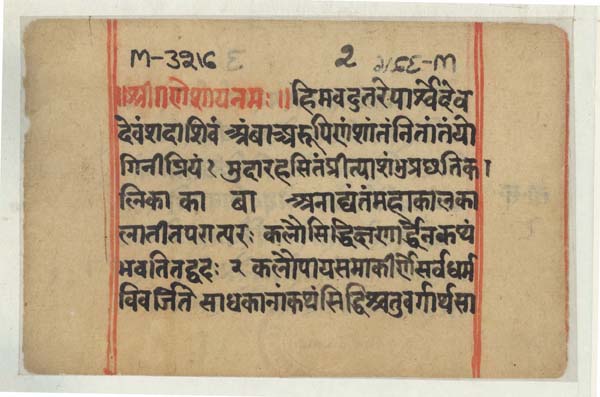 M-३२५६ २
॥श्रीगणेशायनमः॥ हिमवदुतरेपार्श्वेदेव
देवंशदाशिवं अंबाच्यरूपिणंशांतंनितांतंयो
गिनीप्रियं१ मुदारहसितंप्रीत्याशंभुप्रछतिक।
लिका का वा अनाद्यंतंमहाकालका
लातीतपरात्परः कलौसिद्धिकारणार्द्धेनकथं
भवतितद्वदः २ कलौपायसमाकीर्णेसर्वधर्म
विवर्जिते साधकानांकथंसिद्धिश्चतुवर्गार्थसा